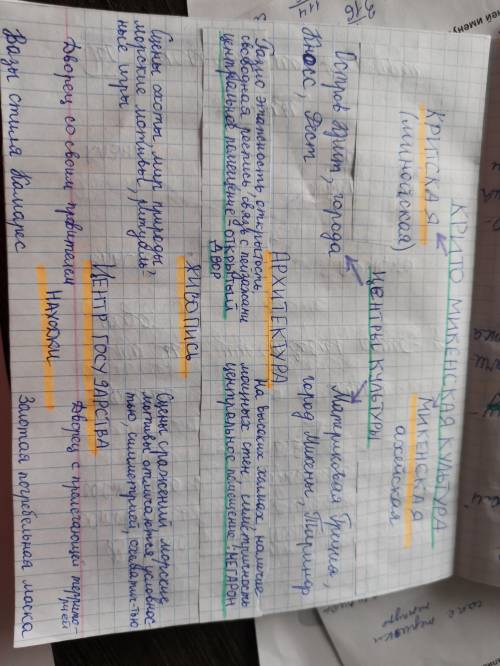 КРИТО МИКЕНСКАЯ КУЛЬТУРА
КРИТСКАЯ
(минойская)
МИКЕНСКАЯ
ахейская
ЦЕНТРЫ КУЛЬТУРЫ
Остров Крит, города
Кносс, Фест
Материковая Греция,
город Микены, Тиринф
АРХИТЕКТУРА
Разно этажность, открытость,
свободная роспись, связь с пейзажами
центральное помещение - ОТКРЫТЫЙ
ДВОР
На высоких холмах, наличие
мощных стен, симметричность
центральное помещение: МЕГАРОН
ЖИВОПИСЬ
Сцены охоты, мир природы,
морские мотивы, ритуаль-
ные игры
Сцены сражений морские
мотивы отличаются условнос
тью, симметрией, схематич-тью
ЦЕНТР ГОСУДАРСТВА
Дворец со своим правителем
Дворец с прилегающей террито-
рией
НАХОДКИ
Вазы стиля Камарес
Золотая погребельная маска